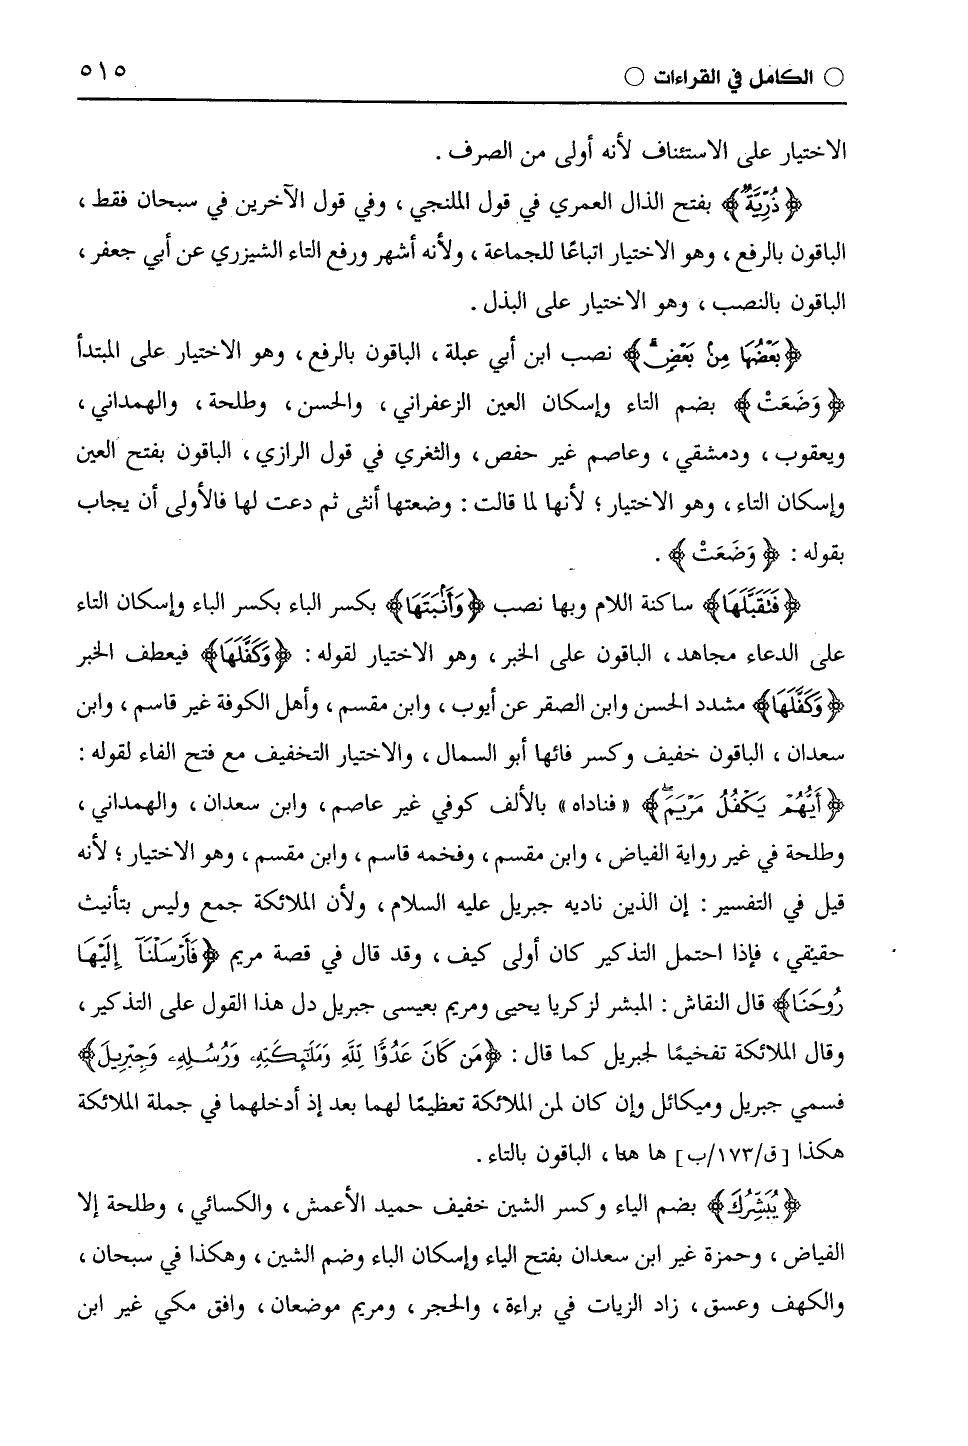 ○ الكامل في القراءات ○ ٥١٥
الاختيار على الاستئناف لأنه أولى من الصرف .
﴿ذُرِّيَّةَۢ﴾ بفتح الذال العمري في قول الملنجي ، وفي قول الآخرين في سبحان فقط ،
الباقون بالرفع ، وهو الاختيار اتباعًا للجماعة ، ولأنه أشهر ورفع التاء الشيزري عن أبي جعفر ،
الباقون بالنصب ، وهو الاختيار على البذل .
﴿بَعْضُهَا مِنۢ بَعْضٖۗ﴾ نصب ابن أبي عبلة ، الباقون بالرفع ، وهو الاختيار على المبتدأ
﴿وَضَعَتْ﴾ بضم التاء وإسكان العين الزعفراني ، والحسن ، وطلحة ، والهمداني ،
ويعقوب ، ودمشقي ، وعاصم غير حفص ، والثغري في قول الرازي ، الباقون بفتح العين
وإسكان التاء ، وهو الاختيار ؛ لأنها لما قالت : وضعتها أنثى ثم دعت لها فالأولى أن يجاب
بقوله : ﴿وَضَعَتْ﴾ .
﴿فَتَقَبَّلَهَا﴾ ساكنة اللام وبها نصب ﴿وَأَنۢبَتَهَا﴾ بكسر الباء بكسر الباء وإسكان التاء
على الدعاء مجاهد ، الباقون على الخبر ، وهو الاختيار لقوله : ﴿وَكَفَّلَهَا﴾ فيعطف الخبر
﴿وَكَفَّلَهَا﴾ مشدد الحسن وابن الصقر عن أيوب ، وابن مقسم ، وأهل الكوفة غير قاسم ، وابن
سعدان ، الباقون خفيف وكسر فائها أبو السمال ، والاختيار التخفيف مع فتح الفاء لقوله :
﴿أَيُّهُمْ يَكْفُلُ مَرْيَمَۖ﴾ «فناداه» بالألف كوفي غير عاصم ، وابن سعدان ، والهمداني ،
وطلحة في غير رواية الفياض ، وابن مقسم ، وفخمه قاسم ، وابن مقسم ، وهو الاختيار ؛ لأنه
قيل في التفسير : إن الذين ناديه جبريل عليه السلام ، ولأن الملائكة جمع وليس بتأنيث
حقيقي ، فإذا احتمل التذكير كان أولى كيف ، وقد قال في قصة مريم ﴿فَأَرْسَلْنَآ إِلَيْهَا
رُوحَنَا﴾ قال النقاش : المبشر لزكريا يحيى ومريم بعيسى جبريل دل هذا القول على التذكير ،
وقال الملائكة تفخيمًا لجبريل كما قال : ﴿مَن كَانَ عَدُوّٗا لِّلَّهِ وَمَلَٰٓئِكَتِهِۦ وَرُسُلِهِۦ وَجِبْرِيلَ﴾
فسمي جبريل وميكائل وإن كان لمن الملائكة تعظيمًا لهما بعد إذ أدخلهما في جملة الملائكة
هكذا [ق/١٧٣/ب] ها هنا ، الباقون بالتاء .
﴿يُبَشِّرُكَ﴾ بضم الياء وكسر الشين خفيف حميد الأعمش ، والكسائي ، وطلحة إلا
الفياض ، وحمزة غير ابن سعدان بفتح الياء وإسكان الباء وضم الشين ، وهكذا في سبحان ،
والكهف وعسق ، زاد الزيات في براءة ، والحجر ، ومريم موضعان ، وافق مكي غير ابن